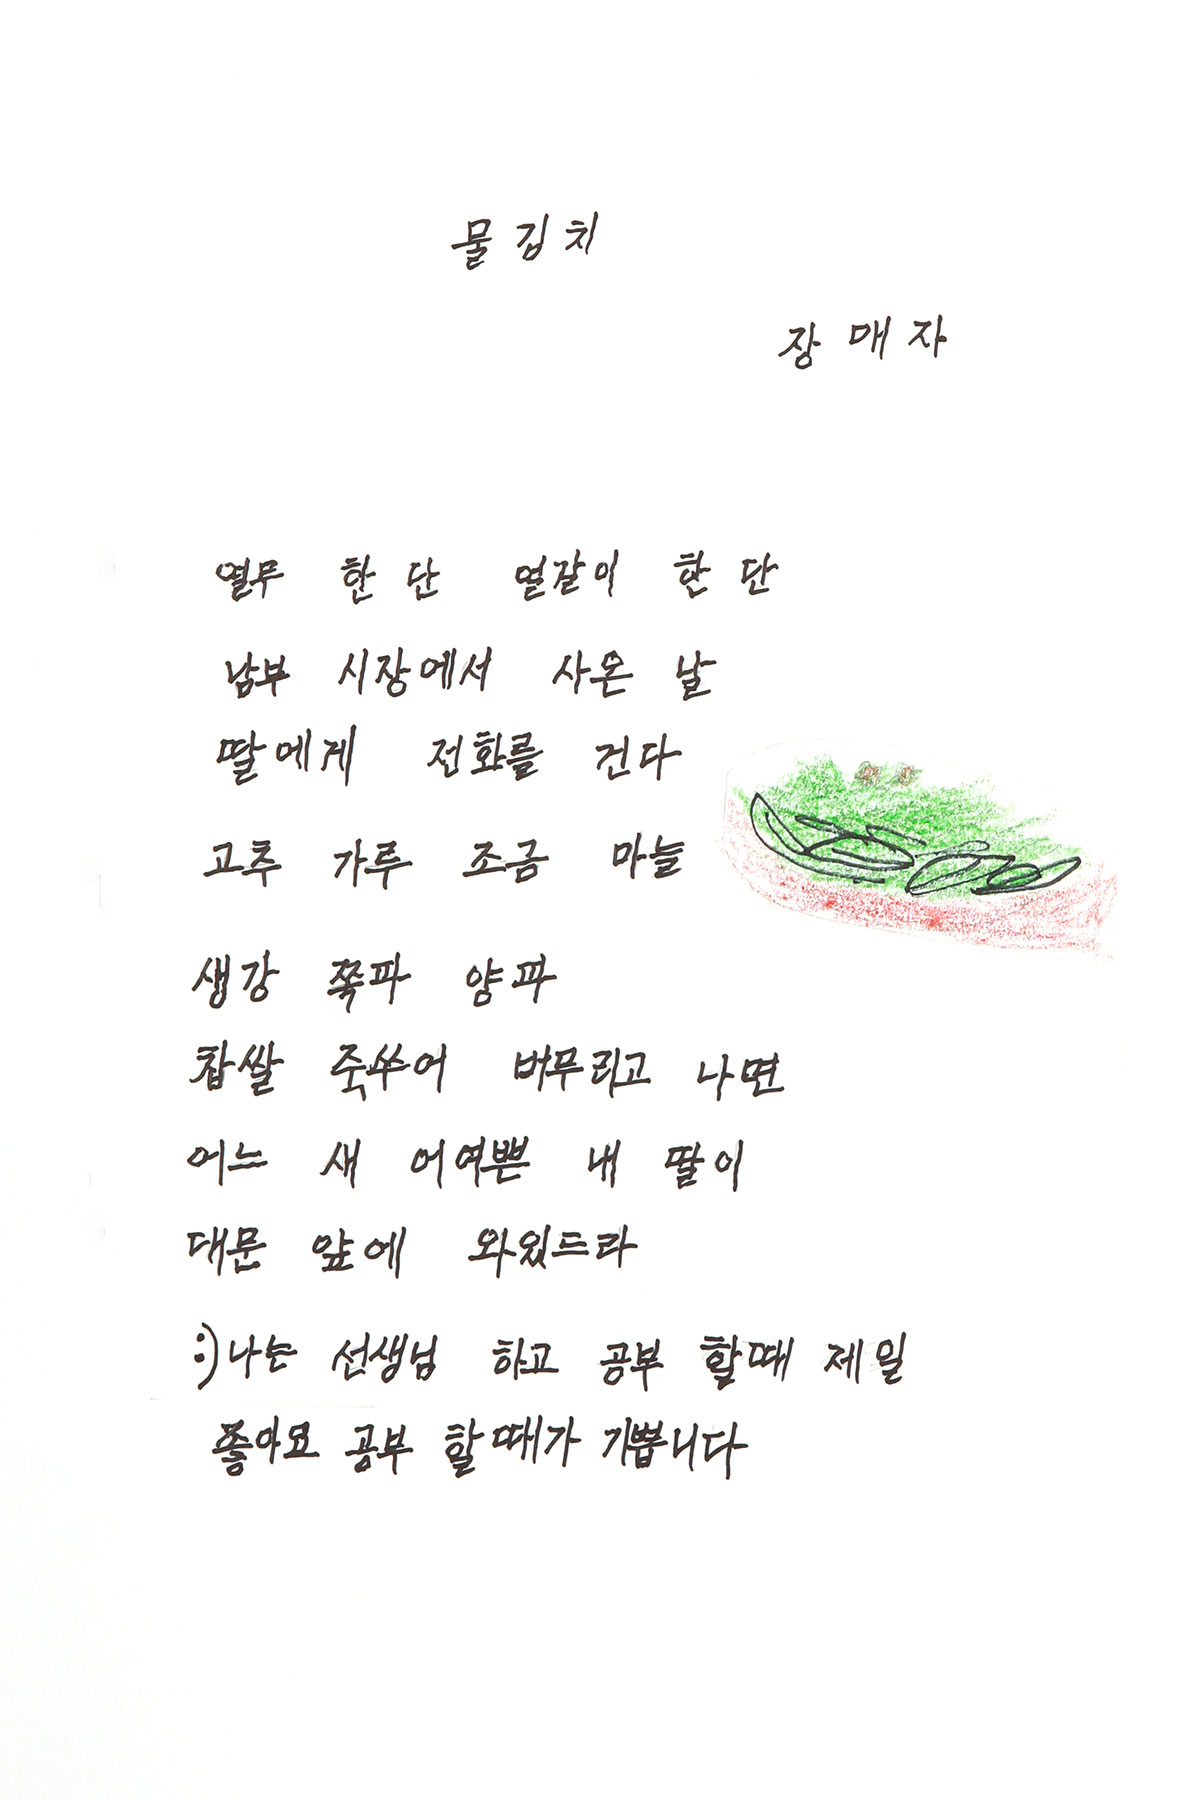 물김치
장매자
열무 한 단 얼갈이 한 단
남부 시장에서 사온 날
딸에게 전화를 건다
고추 가루 조금 마늘
생강 쪽파 양파
찹쌀 죽쑤어 버무리고 나면
어느 새 어여쁜 내 딸이
대문 앞에 와있드라
:) 나는 선생님 하고 공부 할때 제일
좋아요 공부 할때가 기쁩니다